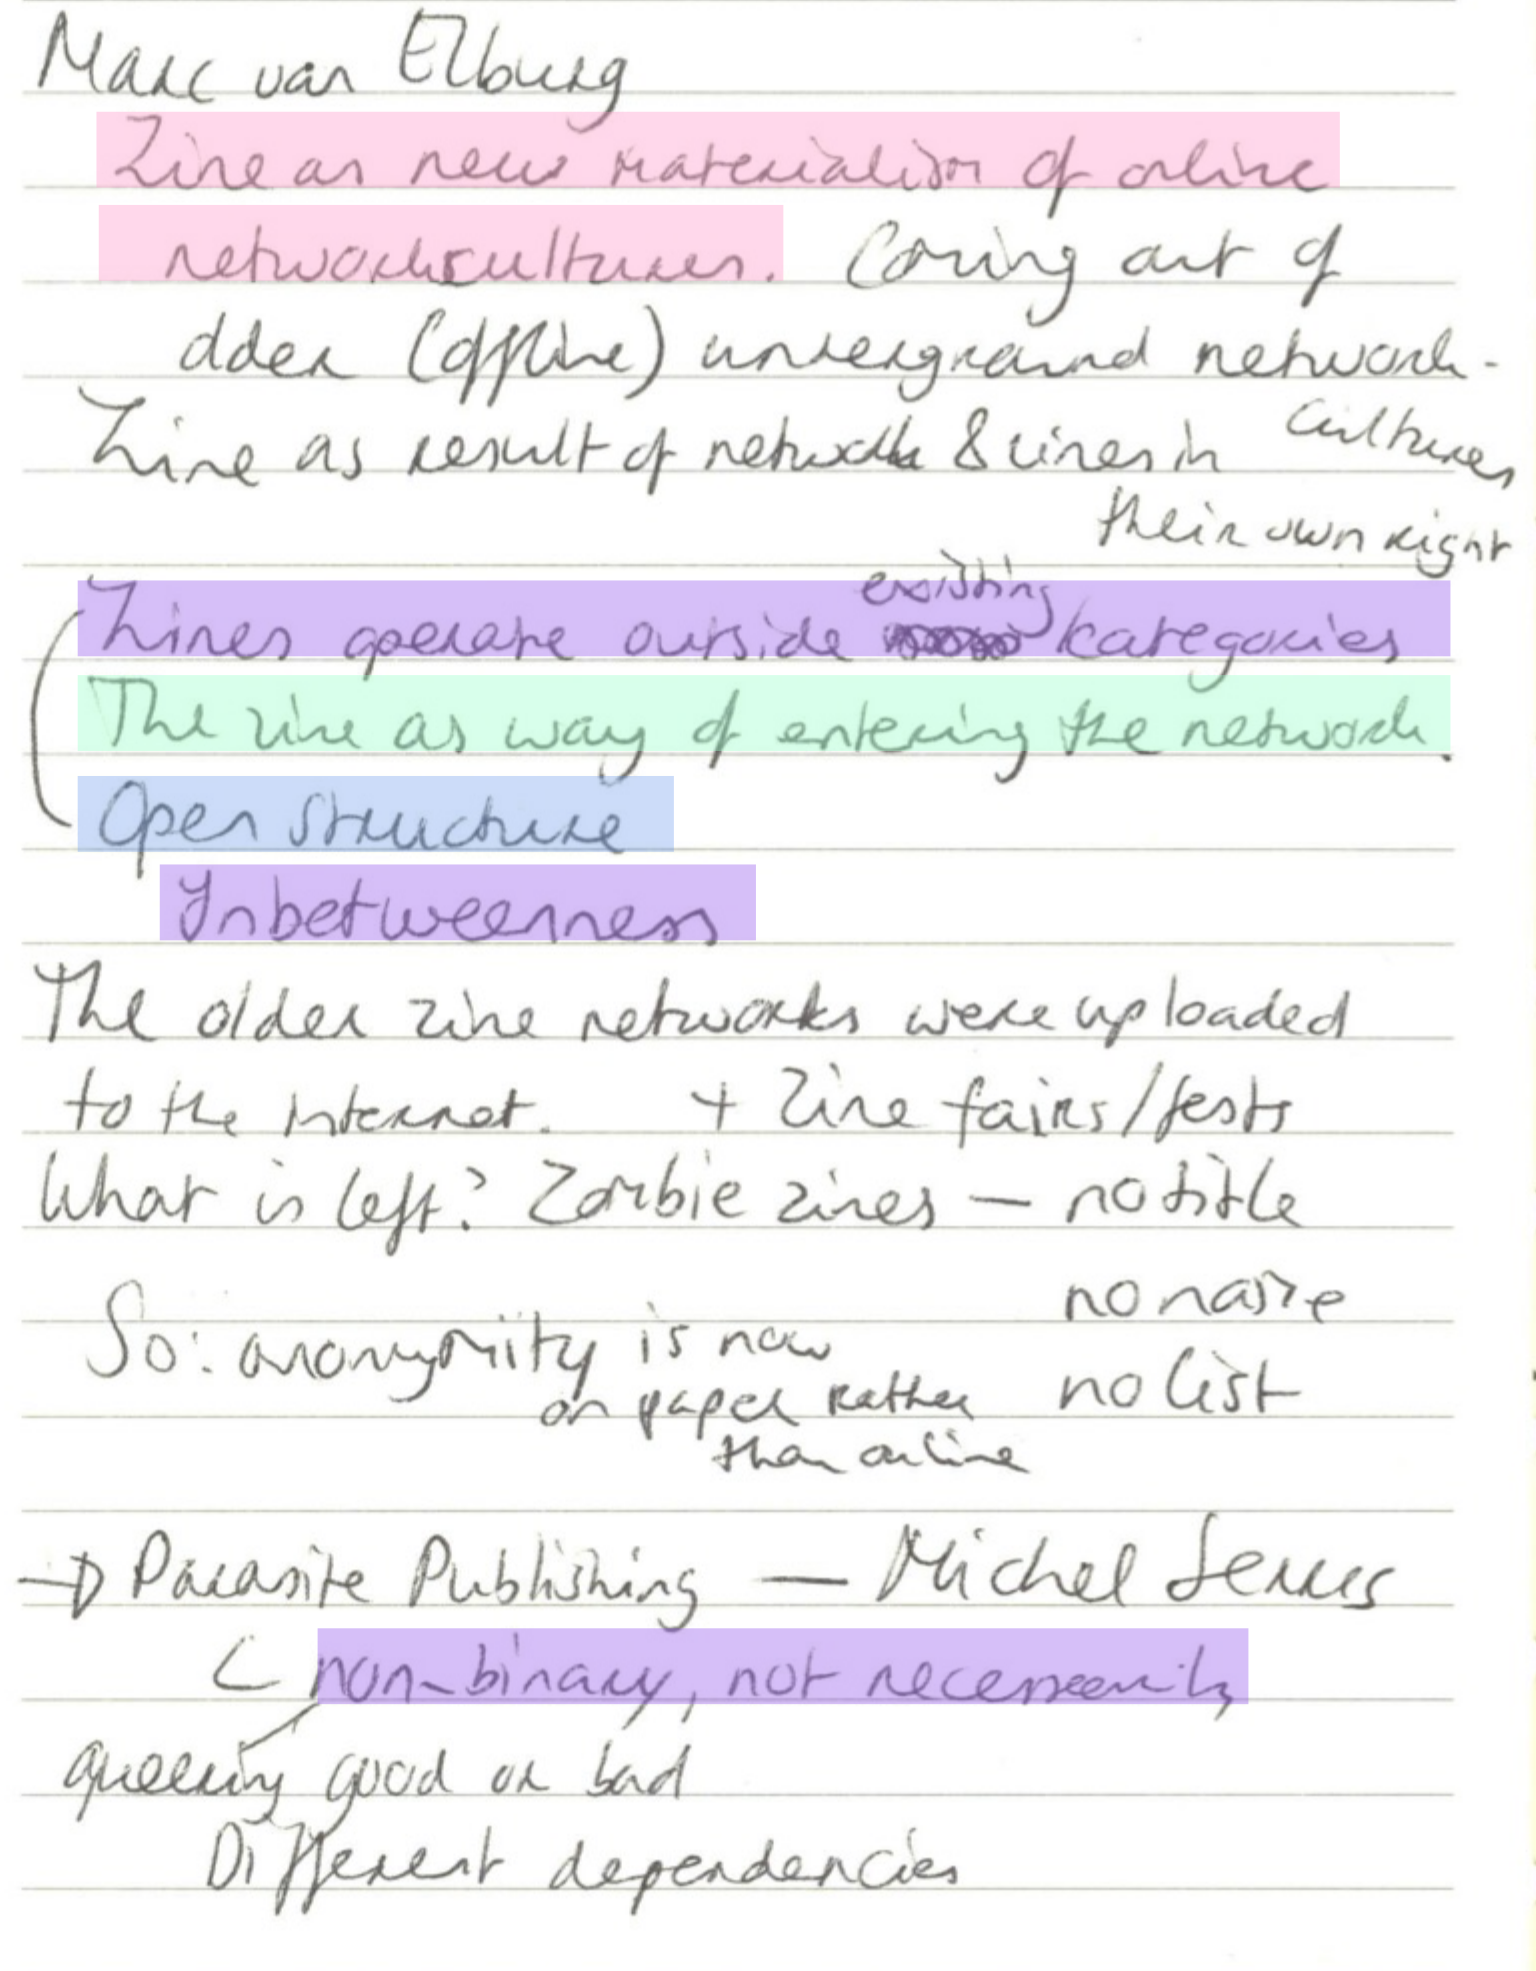 Marc van Elburg
Zine as new materialism of online
networkscultures. Coming out of
older (offline) underground network-
cultures
Zine as result of network & zines in
their own right
existing
Zines operate outside categories
The zine as way of entering the network.
Open structure
Inbetweenness
The older zine networks were uploaded
to the internet. + Zine fairs/fests
What is left? Zombie zines — no title
no name
So: anonymiity is now
on paper rather
no list
than online
→ Parasite Publishing — Michel Serres
non-binary, not necesseerily
queering good or bad
Different dependencies